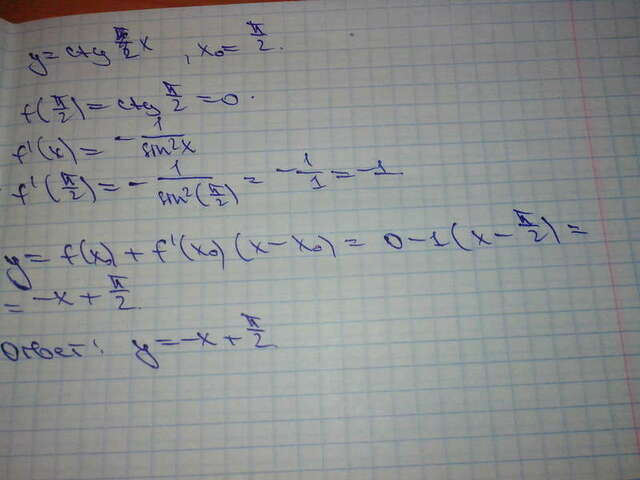 y = ctg π/2 x , x₀ = π/2.
f(π/2) = ctg π/2 = 0.
f'(x) = - 1/sin²x
f'(π/2) = - 1/sin²(π/2) = - 1/1 = -1
y = f(x₀) + f'(x₀)(x - x₀) = 0 - 1(x - π/2) =
= -x + π/2.
Ответ: y = -x + π/2